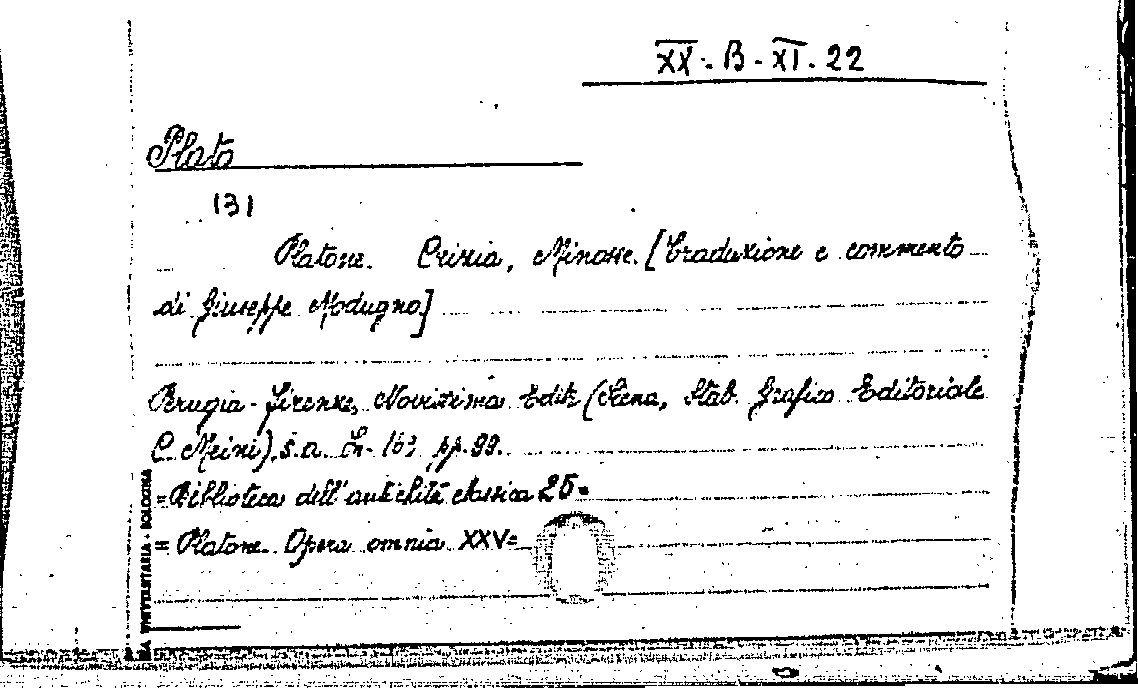 XX. B - XI. 22
Plato
131
Platone. Crizia, Minosse. [Traduzione e commento
di Giuseppe Modugno]
Perugia - Firenze, Novissima Edit. (Siena, Stab. Grafico Editoriale
C. Meini), s.a. in-16º pp. 99.
= Biblioteca dell'antichità classica 25 =
= Platone. Opera omnia XXV =
UNIVERSITARIA - BOLOGNA